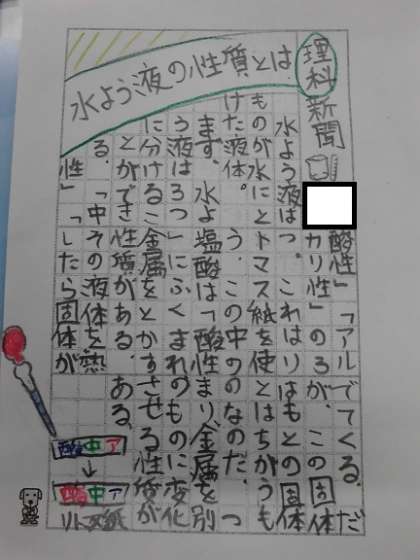 理科新聞
水よう液の性質とは
水よう液は
ものが水にと
けた液体。
まず、水よ
う液は3つ
に分けるこ
とができ
る。「中
性」「
酸性」「アル
カリ性」の3
つ。これはリ
トマス紙を使
う。この中の
塩酸は「酸性
」にふくまれ
金属をとかす
性質がある。
その液体を熱
したら固体が
でてくる。だ
が、この固体
はもとの固体
とはちがうも
のなのだ。つ
まり金属を別
のものに変化
させる性質が
ある。
酸中ア
↓
酸中ア
リトマス紙